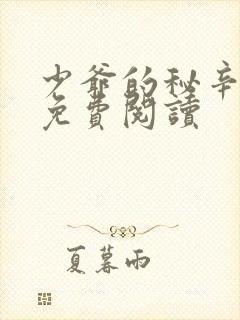 少爺的秘辛
免費閱讀
夏暮雨